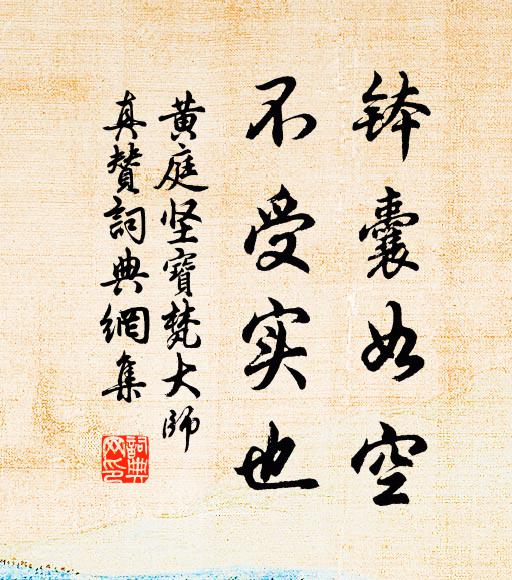 钵囊如空
不受实也
黄庭坚寶梵大师
真贊詞典網集
詞典